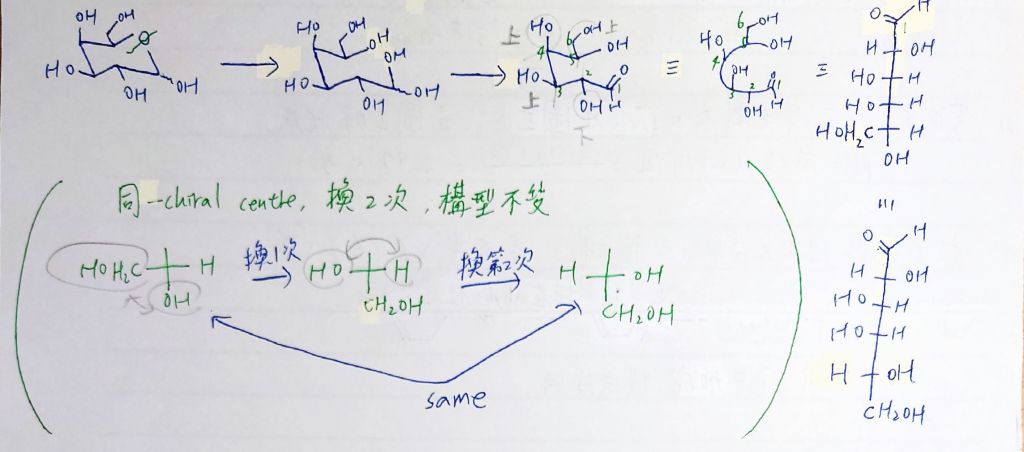 OH OH OH HO OH OH
HO OH OH HO OH OH
HO 上 4 6 OH 上 5 OH HO 3 2 O 1 上 OH H 下
6 OH 5 OH HO 4 OH 3 2 O 1 OH H
O H 1
H OH
HO H
HO H
HOH₂C H
OH
同一chiral centre, 換2次, 構型不变
HOH₂C H OH
換1次
HO H CH₂OH
換第2次
H OH CH₂OH
same
O H
H OH
HO H
HO H
H OH
CH₂OH